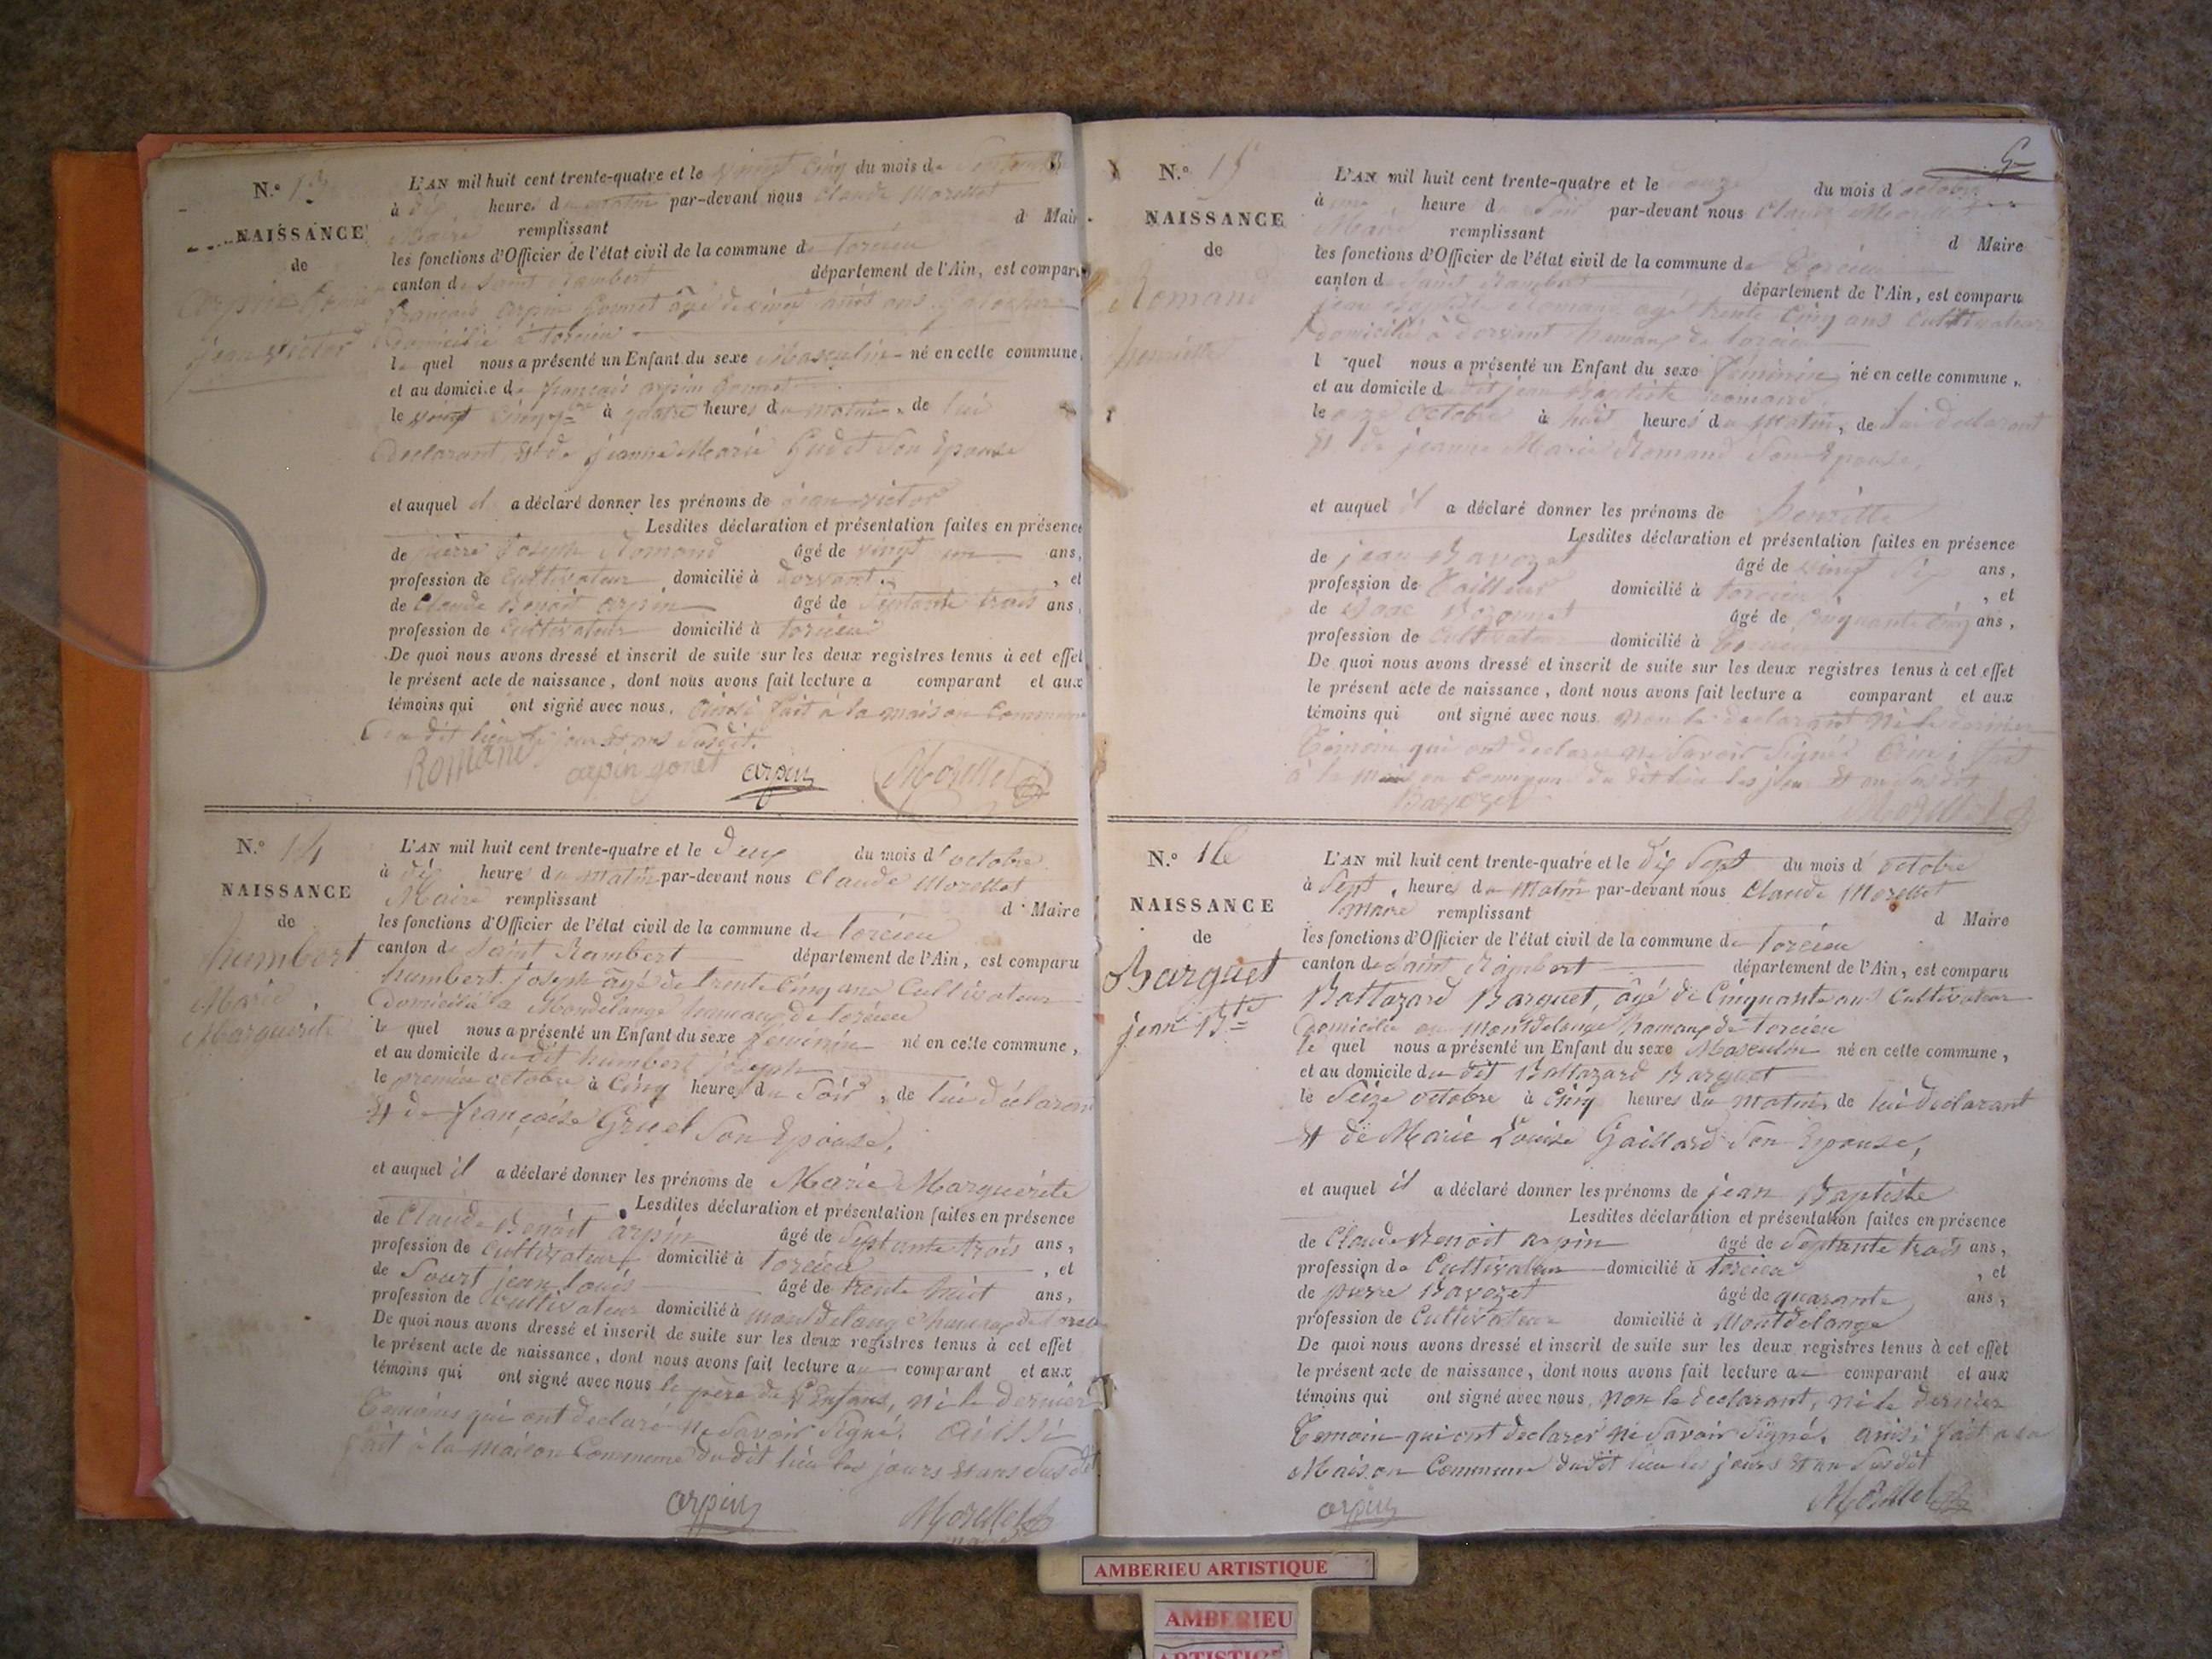 N.º 13
NAISSANCE
de
Arpin Gonet
jean victor
L'AN mil huit cent trente-quatre et le vingt cinq du mois de Septembre
à dix heures du matin par-devant nous Claude Morellet
Maire remplissant d Maire
les fonctions d'Officier de l'état civil de la commune de torcieu
canton de Saint Rambert département de l'Ain, est comparu
français arpin gonnet âgé de vingt ans
Domicilié à torcieu
le quel nous a présenté un Enfant du sexe Masculin né en cette commune,
et au domicile de français arpin gonnet
le vingt cinq à quatre heures du matin, de lui
Declarant, et de jeanne Marie Gudet Son Epouse
et auquel il a déclaré donner les prénoms de jean victor
Lesdites déclaration et présentation faites en présence
de pierre joseph Romand âgé de vingt un ans,
profession de Cultivateur domicilié à dorvant, et
de Claude Benoit arpin âgé de Septante trois ans,
profession de Cultivateur domicilié à torcieu
De quoi nous avons dressé et inscrit de suite sur les deux registres tenus à cet effet
le présent acte de naissance, dont nous avons fait lecture a comparant et aux
témoins qui ont signé avec nous. Ainsi fait à la maison Commune
du dit lieu le jour et ans Susdit.
Romand arpin gonet arpin Morellet
N.º 14
NAISSANCE
de
humbert
Marie
Marguerite
L'AN mil huit cent trente-quatre et le Deux du mois d'octobre
à dix heures du matin par-devant nous Claude Morellet
Maire remplissant d Maire
les fonctions d'Officier de l'état civil de la commune de torcieu
canton de Saint Rambert département de l'Ain, est comparu
humbert joseph âgé de trente Cinq ans Cultivateur
Domicilié a Mondelange hameaux de torcieu
le quel nous a présenté un Enfant du sexe feminin né en cette commune,
et au domicile du dit humbert joseph
le premier octobre à Cinq heures du Soir, de lui déclarant
et de françoise Gruel Son Epouse,
et auquel il a déclaré donner les prénoms de Marie Marguerite
Lesdites déclaration et présentation faites en présence
de Claude Benoit arpin âgé de Septante trois ans,
profession de Cultivateur domicilié à torcieu, et
de Sourt jean louis âgé de trente huit ans,
profession de Cultivateur domicilié à mondelange hameaux de torcieu
De quoi nous avons dressé et inscrit de suite sur les deux registres tenus à cet effet
le présent acte de naissance, dont nous avons fait lecture au comparant et aux
témoins qui ont signé avec nous le père de l'Enfans, ni le dernier
Temoins qui ont declaré ne Savoir Signé. Aissi
fait à la maison Commune du dit lieu les jours et ans Susdit
arpin Morellet
maire
N.º 15
NAISSANCE
de
Romand
henriette
L'AN mil huit cent trente-quatre et le douze du mois d octobre
à heure d Soir par-devant nous Claude Morellet
Maire remplissant d Maire
les fonctions d'Officier de l'état civil de la commune de torcieu
canton de Saint Rambert département de l'Ain, est comparu
jean Baptiste Romand agé trente Cinq ans Cultivateur
Domicilié à dorvant hameaux de torcieu
l quel nous a présenté un Enfant du sexe féminin né en cette commune,
et au domicile du dit jean Baptiste Romand
le onze octobre à huit heures du Matin, de lui declarant
Et de jeanne Marie Romand Son Epouse,
et auquel il a déclaré donner les prénoms de henriette
Lesdites déclaration et présentation faites en présence
de jean Bavozet âgé de vingt Six ans,
profession de Tailleur domicilié à torcieu, et
de âgé de Cinquante Cinq ans,
profession de Cultivateur domicilié à torcieu
De quoi nous avons dressé et inscrit de suite sur les deux registres tenus à cet effet
le présent acte de naissance, dont nous avons fait lecture a comparant et aux
témoins qui ont signé avec nous non le declarant ni le dernier
Temoin qui ont declaré ne Savoir Signé Ainsi fait
à la maison Commune du dit lieu les jour et an susdit
Bavozet Morellet
N.º 16
NAISSANCE
de
Barquet
jean Bte
L'AN mil huit cent trente-quatre et le dix Sept du mois d octobre
à Sept heures du Matin par-devant nous Claude Morellet
maire remplissant d Maire
les fonctions d'Officier de l'état civil de la commune de torcieu
canton de Saint Rambert département de l'Ain, est comparu
Baltazard Barquet, âgé de Cinquante ans Cultivateur
Domicilié au Montdelange hameaux de torcieu
le quel nous a présenté un Enfant du sexe Masculin né en cette commune,
et au domicile du dit Baltazard Barquet
le Seize octobre à Cinq heures du matin, de lui declarant
et de Marie Louise Gaillard Son Epouse,
et auquel il a déclaré donner les prénoms de jean Baptiste
Lesdites déclaration et présentation faites en présence
de Claude Benoit arpin âgé de Septante trois ans,
profession de Cultivateur domicilié à torcieu, et
de pierre Bavozet âgé de quarante ans,
profession de Cultivateur domicilié à Montdelange
De quoi nous avons dressé et inscrit de suite sur les deux registres tenus à cet effet
le présent acte de naissance, dont nous avons fait lecture au comparant et aux
témoins qui ont signé avec nous, non le declarant, ni le dernier
Temoin qui ont declarer ne Savoir Signé. ainsi fait a la
Maison Commune du dit lieu les jours et an Susdit
arpin Morellet
AMBERIEU ARTISTIQUE
AMBERIEU
ARTISTIQUE